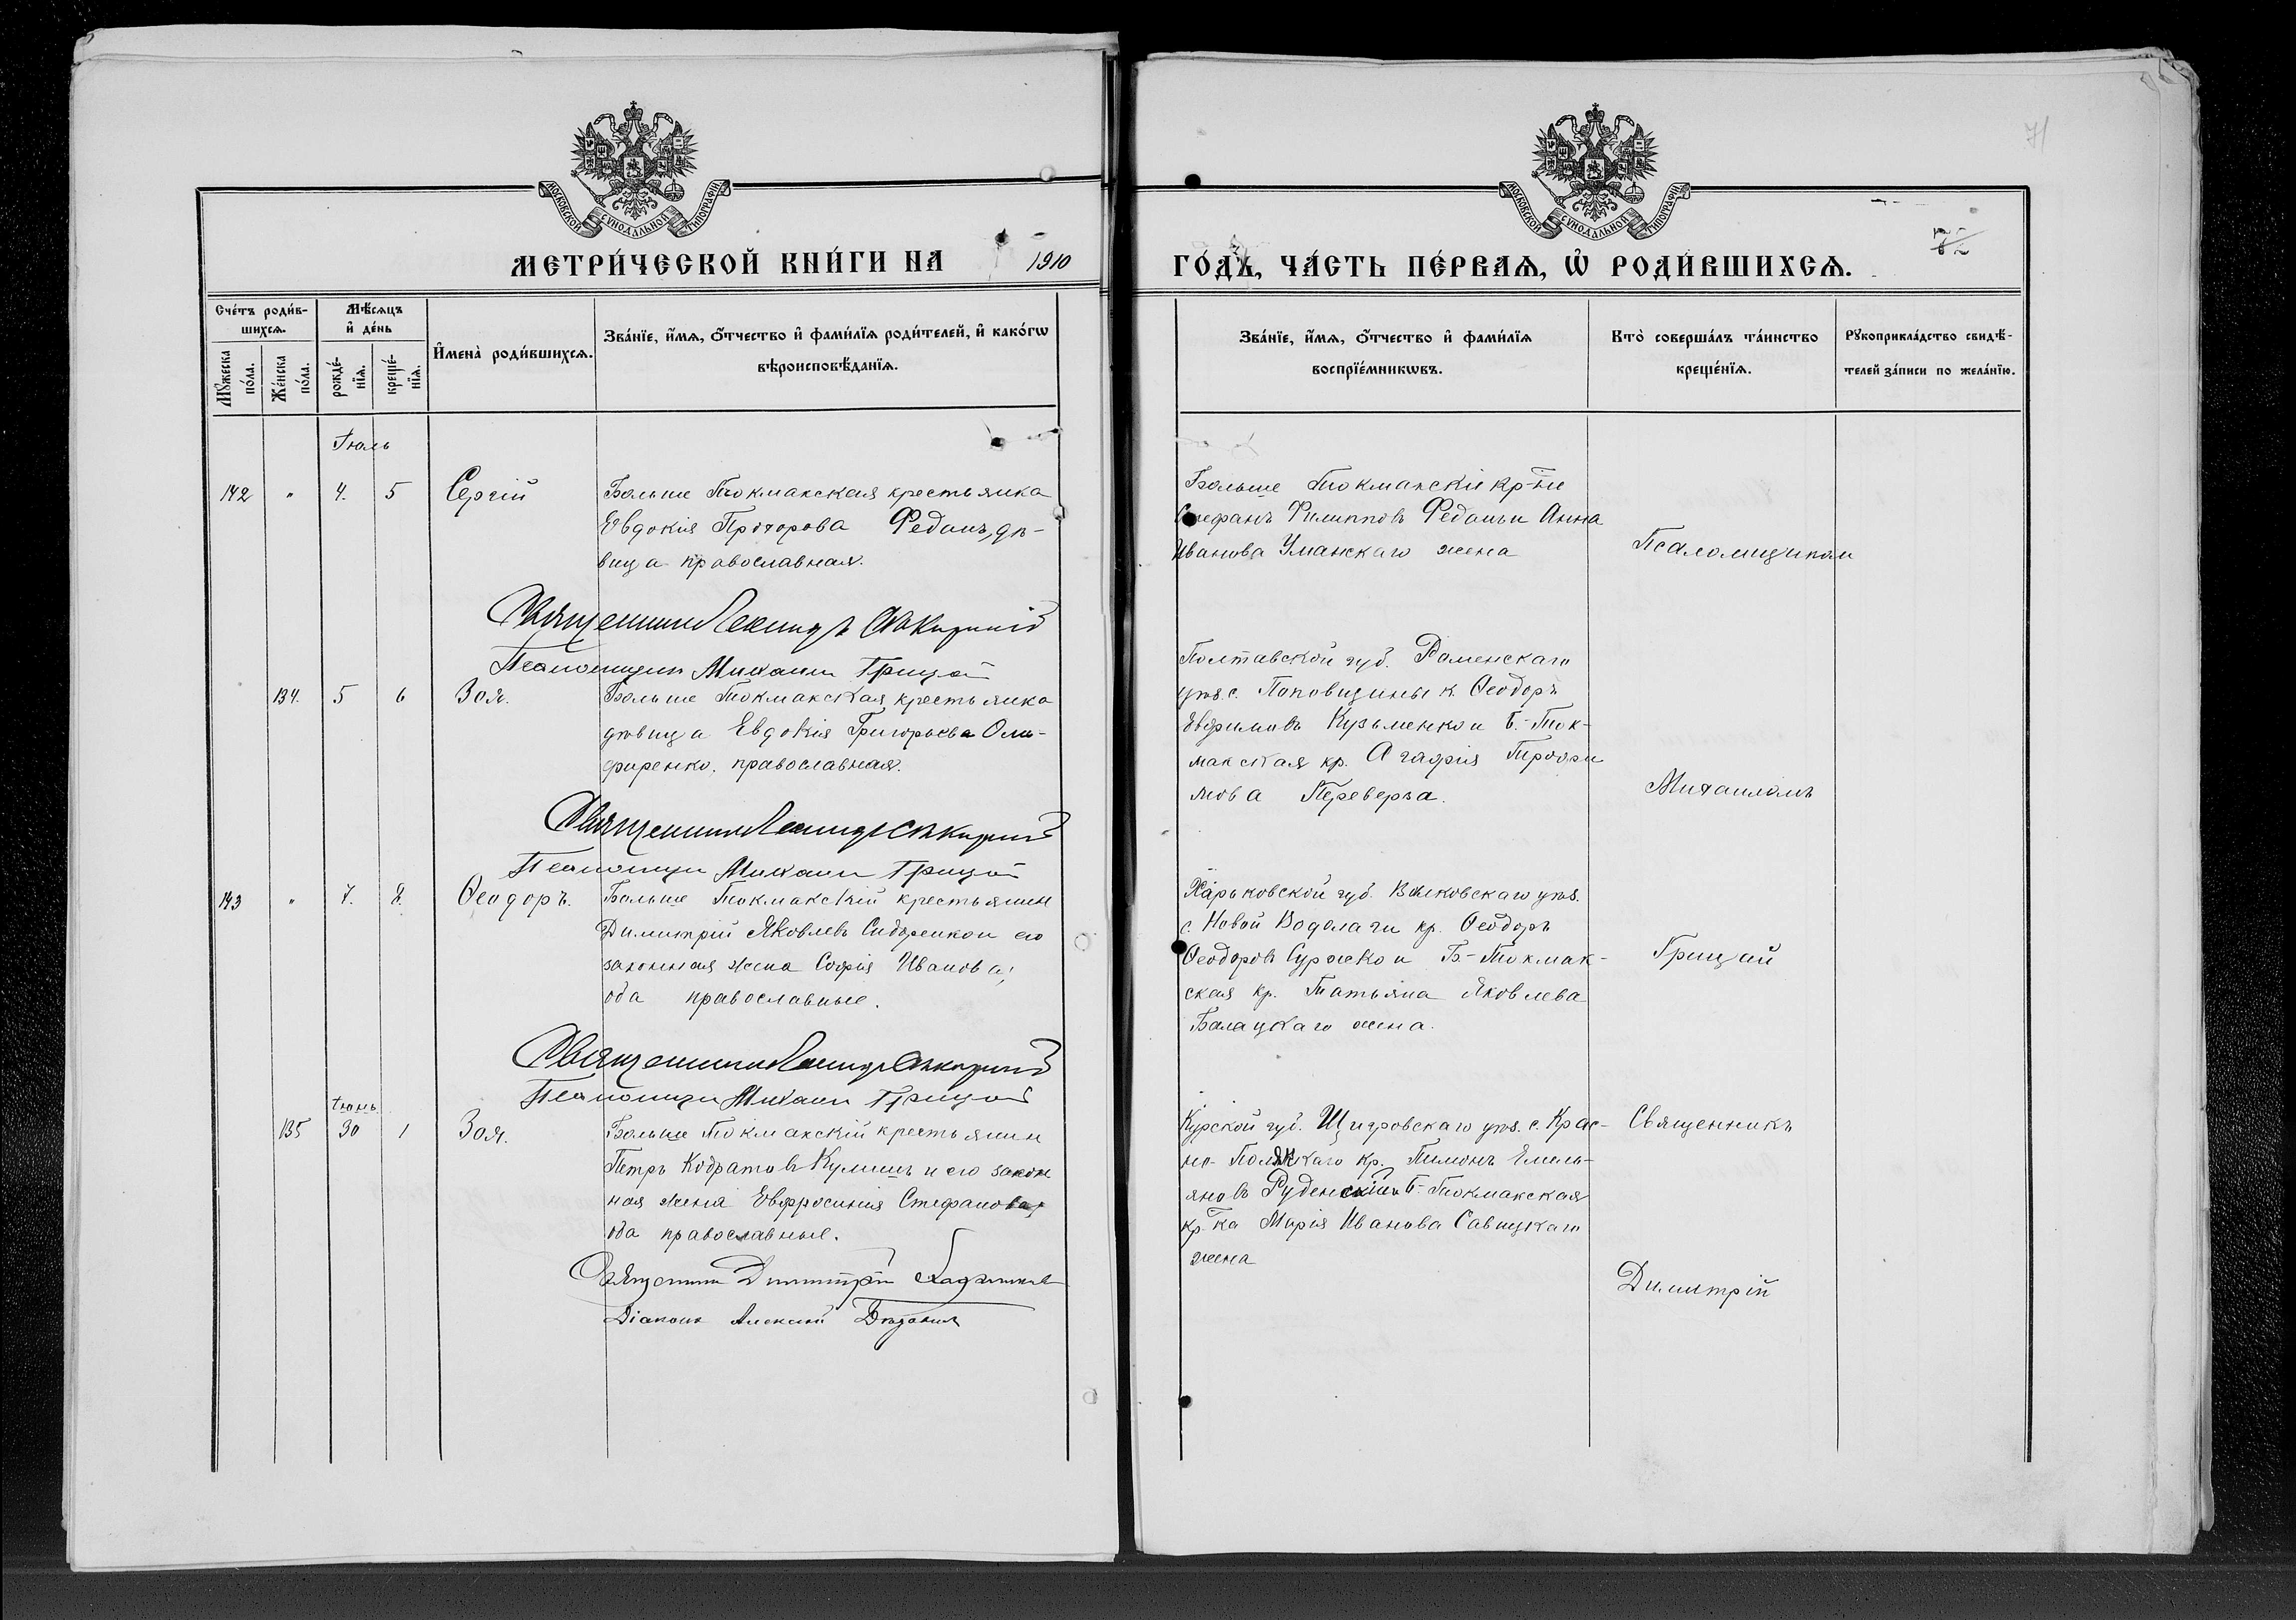 71
72
МОСКОВСКОЙ СУНОДАЛЬНОЙ ТИПОГРАФІИ
МОСКОВСКОЙ СУНОДАЛЬНОЙ ТИПОГРАФІИ
МЕТРИ́ЧЕСКОЙ КНИ́ГИ НА 1910
ГО́ДЪ, ЧА́СТЬ ПЕ́РВАѦ, Ѡ҆ РОДИ́ВШИХСѦ.
Сче́тъ роди́в-
шихсѧ.
Мꙋ́жеска
по́ла.
Же́нска
по́ла.
Мѣ́сѧцъ
и҆ де́нь
рожде́-
нїѧ.
креще́-
нїѧ.
И҆мена̀ роди́вшихсѧ.
Зва́нїе, и҆́мѧ, ѻ҆́тчество и҆ фами́лїѧ роди́телей, и҆ како́гѡ
вѣроисповѣ́данїѧ.
Зва́нїе, и҆́мѧ, ѻ҆́тчество и҆ фами́лїѧ
воспрїе́мникѡвъ.
Кто̀ соверша́лъ та́инство
креще́нїѧ.
Рꙋкоприкла́дство свидѣ́-
телей за́писи по жела́нїю.
Іюль
142 " 4. 5 Сергій
Больше Токмакская крестьянка
Евдокія Прохорова Федань, дѣ-
вица православная.
Священникъ Леонидъ
Псаломщикъ Михаилъ Грицай
Больше Токмакскіе кр-не
Стефанъ Филипповъ Федань и Анна
Иванова Уманскаго жена
Псаломщикомъ
134. 5 6 Зоя.
Больше Токмакская крестьянка
дѣвица Евдокія Григорьева Оли-
фиренко, православная.
Священникъ Леонидъ
Псаломщикъ Михаилъ Грицай
Полтавской губ. Роменскаго
уѣз. с. Поповщины к. Ѳеодоръ
Евфимовъ Кузьменко и Б.-Ток-
макская кр. Агафія Трофи
мова Переверза.
Михаиломъ
143 " 7. 8. Ѳеодоръ.
Больше Токмакскій крестьянин
Димитрій Яковлевъ Сидоренко и его
законная жена Софія Иванова,
оба православные.
Священникъ Леонидъ
Псаломщикъ Михаилъ Грицай
Харьковской губ. Валковскаго уѣз.
с. Новой Водолаги кр. Ѳеодоръ
Ѳеодоровъ Сурженко и Б.-Токмак-
ская кр. Татьяна Яковлева
Балацкаго жена.
Грицай
Іюнь
135 30 1 Зоя.
Больше Токмакскій крестьянин
Петръ Кодратовъ Кулишъ и его закон
ная жена Евфросинія Стефанова,
оба православные.
Священникъ Димитрій
Діаконъ Алексій
Курской губ. Щигровскаго уѣз. с. Крас-
но-Полянскаго кр. Пименъ Емель-
яновъ Руденскій и Б.-Токмакская
кр-ка Марія Иванова Савицкаго
жена
Священникъ
Димитрій